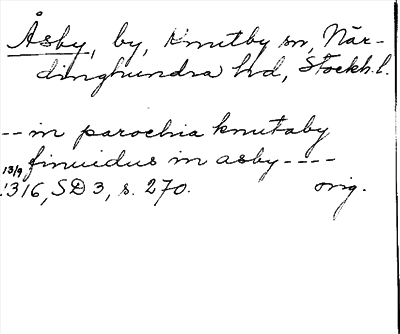 Åsby, by, Knutby sn, När-
dinghundra hd, Stockh.l.
-- in parochia knutaby
finuidus in asby ----
13/9 1316, SD 3, s. 270. orig.